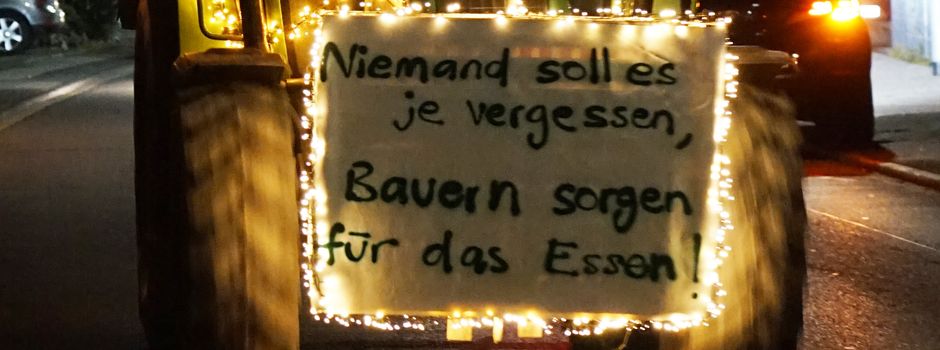 Niemand soll es
je vergessen,
Bauern sorgen
für das Essen!